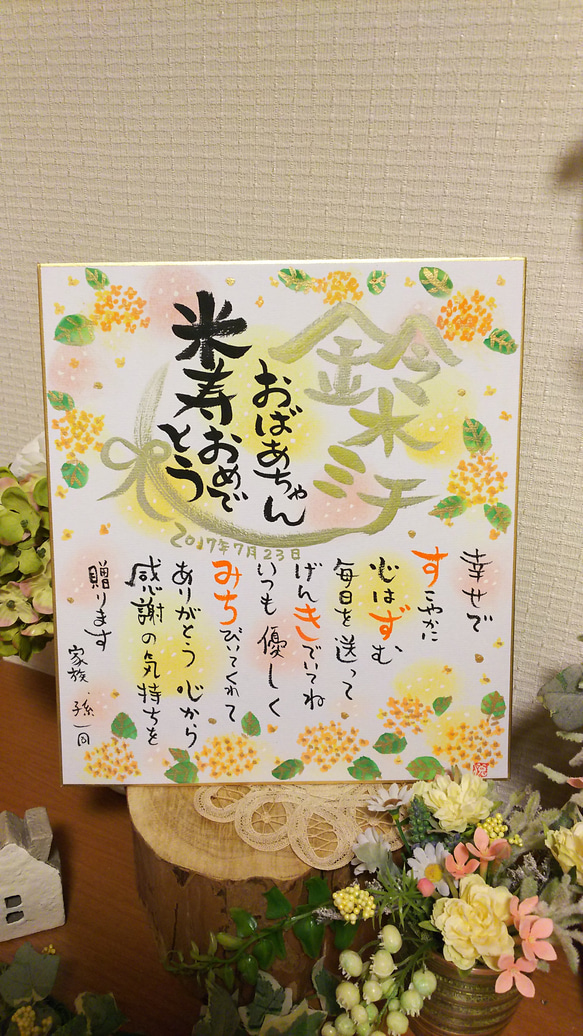 鈴木
ミチ
おばあちゃん
米寿おめでとう
2017年7月23日
幸せで
すこやかに
心はずむ
毎日を送って
げんきでいてね
いつも優しく
みちびいてくれて
ありがとう 心から
感謝の気持ちを
贈ります
家族・孫一同